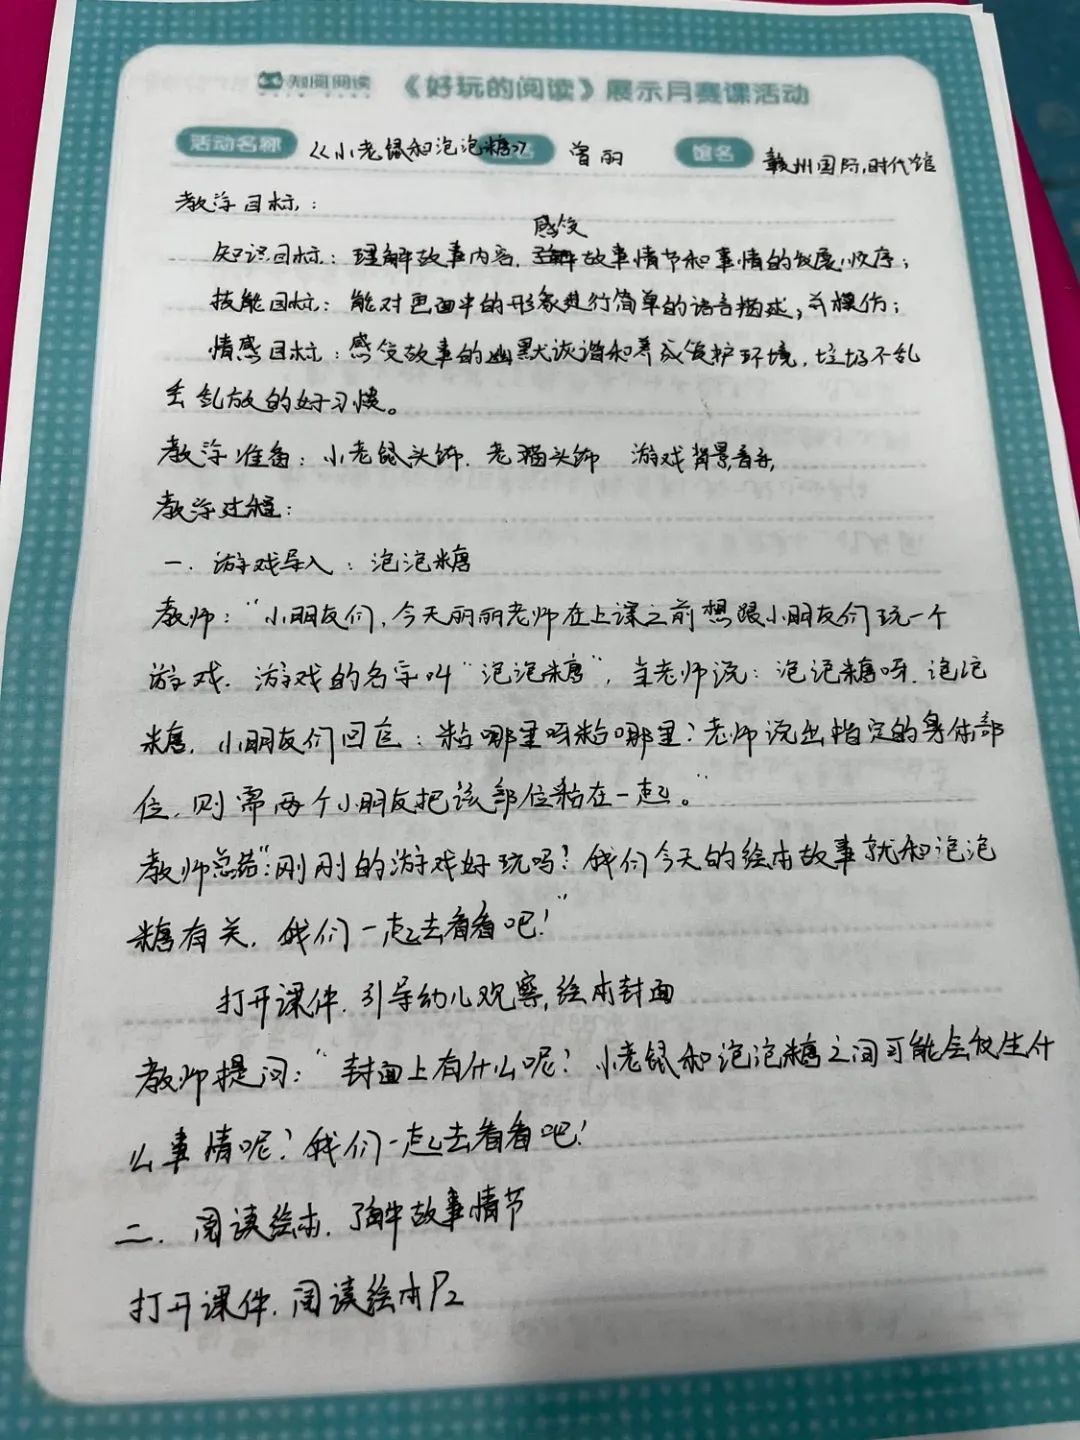 知阅阅读 《好玩的阅读》展示月赛课活动
活动名称 《小老鼠和泡泡糖》 曾丽 馆名 赣州国际时代馆
教学目标：
感受
知识目标：理解故事内容，了解故事情节和事情的发展顺序；
技能目标：能对画面中的形象进行简单的语言描述，并模仿；
情感目标：感受故事的幽默诙谐和养成保护环境，垃圾不乱
丢乱放的好习惯。
教学准备：小老鼠头饰、老猫头饰 游戏背景音乐
教学过程：
一、游戏导入：泡泡糖
教师：“小朋友们，今天丽丽老师在上课之前想跟小朋友们玩一个
游戏，游戏的名字叫“泡泡糖”，当老师说：泡泡糖呀，泡泡
糖，小朋友们回应：粘哪里呀粘哪里？老师说出指定的身体部
位，则需两个小朋友把该部位粘在一起。”
教师总结“：刚刚的游戏好玩吗？我们今天的绘本故事就和泡泡
糖有关，我们一起去看看吧！”
打开课件，引导幼儿观察，绘本封面
教师提问：“封面上有什么呢？小老鼠和泡泡糖之间可能会发生什
么事情呢？我们一起去看看吧！
二、阅读绘本，了解故事情节
打开课件，阅读绘本P2